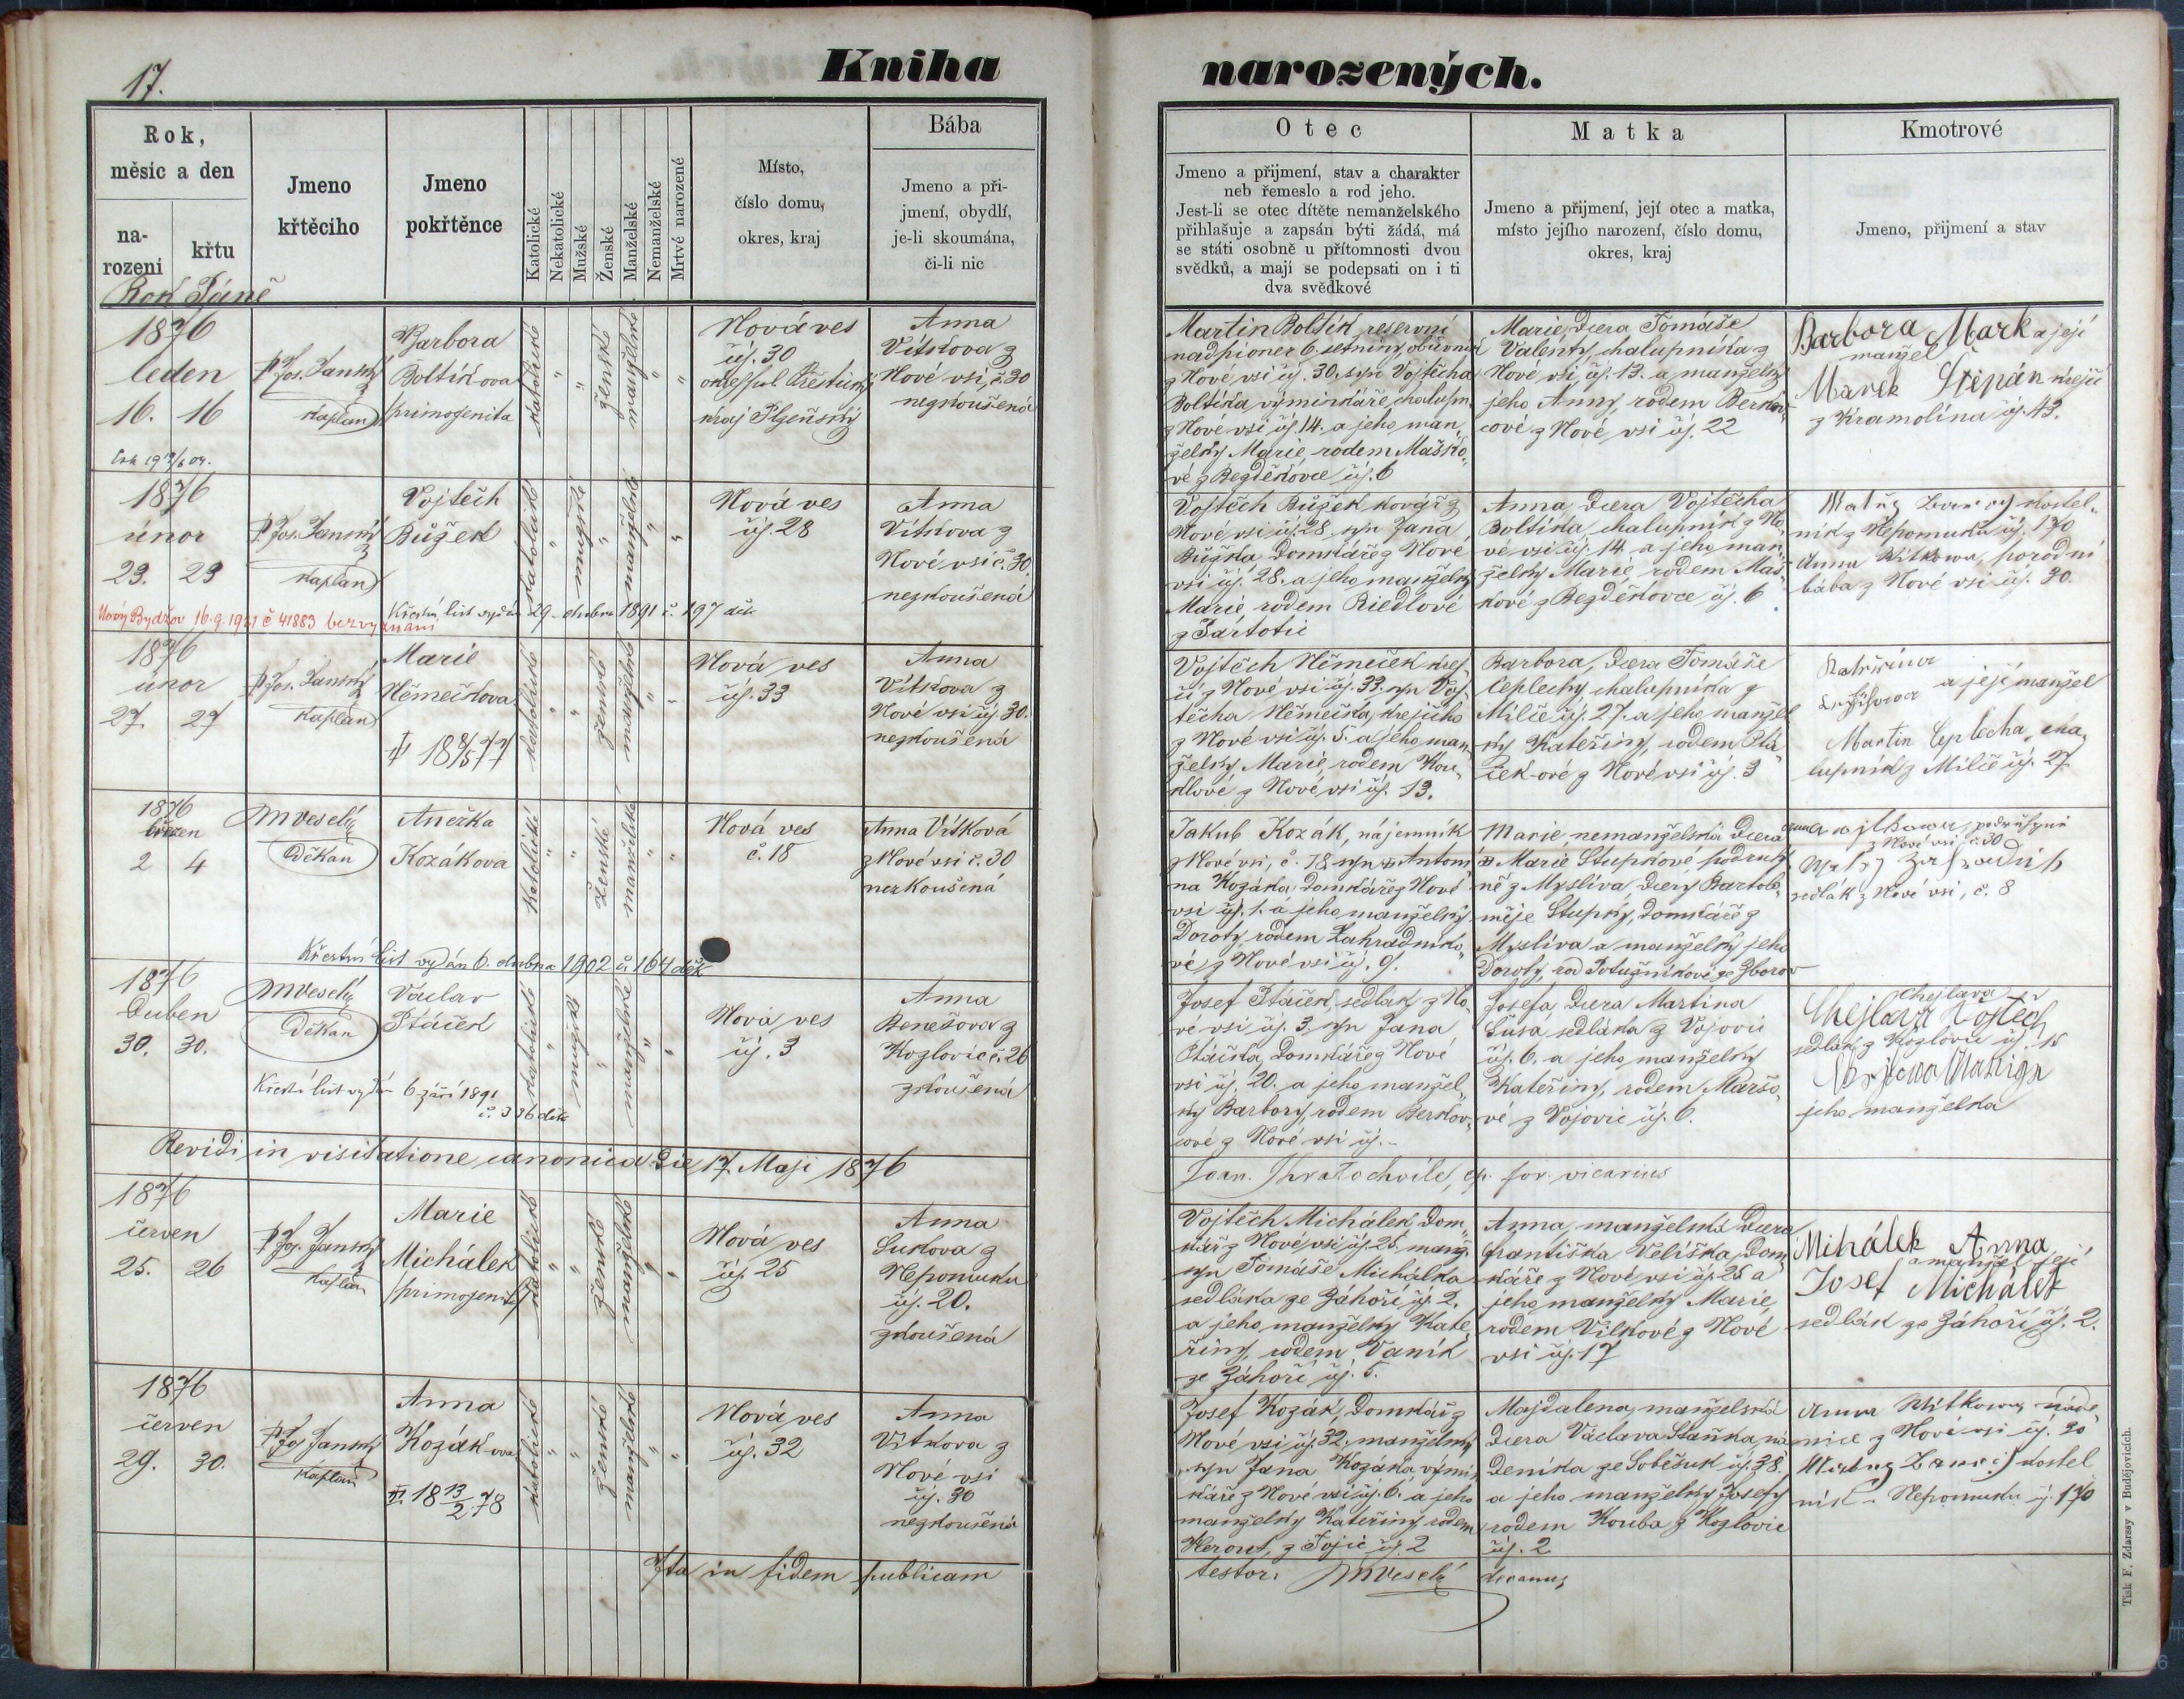 17.
Kniha
narozených.
Rok,
měsíc a den
na-
rození
křtu
Jmeno
křtěcího
Jmeno
pokřtěnce
Katolické
Nekatolické
Mužské
Ženské
Manželské
Nemanželské
Mrtvé narozené
Místo,
číslo domu,
okres, kraj
Bába
Jmeno a při-
jmení, obydlí,
je-li skoumána,
či-li nic
Otec
Jmeno a přijmení, stav a charakter
neb řemeslo a rod jeho.
Jest-li se otec dítěte nemanželského
přihlašuje a zapsán býti žádá, má
se státi osobně u přítomnosti dvou
svědků, a mají se podepsati on i ti
dva svědkové
Matka
Jmeno a přijmení, její otec a matka,
místo jejího narození, číslo domu,
okres, kraj
Kmotrové
Jmeno, přijmení a stav
Rok Páně
1876
leden
16. 16
P Jos. Janský
kaplan
Barbora
Boltíkova
/primogenita
katolické
ženské
manželské
Nová ves
čís. 30
kraj Plzeňský
Anna
Vítkova z
Nové vsi, č. 30
nezkoušená
Martin Boltík, reservní
nadpioner 6. setniny
z Nové vsi čís. 30. syn Vojtěcha
Boltíka výminkáře, chalupn.
z Nové vsi čís. 14. a jeho man
želky Marie, rodem Maško
vé z Bezděkovce čís. 6
Marie, dcera Tomáše
Valenty, chalupníka z
Nové vsi, čís. 13. a manželky
jeho Anny, rodem Berkov
cové z Nové vsi čís. 22
Barbora Mark a její
manžel
Marek Štěpán krejčí
z Kramolína čís. 43.
1876
únor
23. 23
P Jos. Janský
kaplan
Vojtěch
Bůžek
katolické
mužské
manželské
Nová ves
čís. 28
Anna
Vítkova z
Nové vsi č. 30
nezkoušená
Křestní list vydán 29. dubna 1891 č. 197 děk
Nový Bydžov 16.9.1921 č 41883 bez vyznání
Vojtěch Bůžek kovář z
Nové vsi čís. 28, syn Jana
Bůžka, domkáře z Nové
vsi čís. 28. a jeho manželky
Marie rodem Riedlové
z Partotic
Anna, dcera Vojtěcha
Boltíka, chalupník z No
vé vsi čís. 14. a jeho man
želky Marie, rodem Maš
kové z Bezděkovce čís. 6
kostel
ník z Nepomuku čís. 170
Anna Witkowa, porodní
bába z Nové vsi čís. 30.
1876
únor
27. 27
P Jos. Janský
kaplan
Marie
Němečkova
katolické
ženské
manželské
Nová ves
čís. 33
Anna
Vítkova z
Nové vsi čís. 30.
nezkoušená
Vojtěch Němeček krej
čí z Nové vsi čís. 33. syn Voj
těcha Němečka, krejčího
z Nové vsi čís. 5. a jeho man
želky, Marie, rodem Kou
klové z Nové vsi čís. 13.
Barbora, dcera Tomáše
Ceplechy chalupníka z
Milče čís. 27. a jeho manžel
ky Kateřiny, rodem Ptá
ček-ové z Nové vsi čís. 3
a její manžel
Martin Ceplecha, cha
lupník z Milče čís. 27.
1876
březen
2 4
MVeselý
děkan
Anežka
Kozákova
katolické
ženské
manželské
Nová ves
č. 18
Anna Vítková
z Nové vsi č. 30
nezkoušená
Křestní list vydán 6. dubna 1902 č. 164 děk
Jakub Kozák, nájemník
z Nové vsi, č. 18 syn Antoni
na Kozáka, domkáře z Nové
vsi čís. 1. a jeho manželky
Doroty, rodem Zahradníko
vé, z Nové vsi čís. 9.
Marie, nemanželská dcera
Marie Stupkové, podruh
ně z Myslíva dcery Bartolo
měje Stupky, domkáře z
Myslíva a manželky jeho
Doroty, rod Potužníkové ze Zborov
z Nové vsi č. 30
sedlák z Nové vsi, č. 8
1876
duben
30. 30.
MVeselý
děkan
Václav
Ptáček
katolické
mužské
manželské
Nová ves
čís. 3
Anna
Benešova z
Kozlovic č. 26
zkoušená
Křestní list vydán 6 září 1891
č. 336 děk
Josef Ptáček, sedlák z No
vé vsi čís. 3. syn Jana
Ptáčka, domkáře z Nové
vsi čís. 20. a jeho manžel
ky Barbory, rodem Berkov
cové z Nové vsi čís. -
Josefa, dcera Martina
sedláka z Vojovic
čís. 6. a jeho manželky
Kateřiny, rodem Maršo
vé z Vojovic čís. 6.
Chejlava
Chejlava Vojtěch
sedlák z Kozlovic čís. 15
jeho manželka
Revidi in visitatione canonica die 17. Maji 1876
Joan. Kratochvíle, ep. for. vicarius
1876
červen
25. 26
P Jos. Janský
kaplan
Marie
Michálek
/primogenita/
katolické
ženské
manželské
Nová ves
čís. 25
Anna
Sukova z
Nepomuku
čís. 20.
zkoušená
Vojtěch Michálek, dom
kář z Nové vsi čís. 25, manž.
syn Tomáše Michálka
sedláka ze Záhoří čís. 2.
a jeho manželky Kate
řiny, rodem Vaník
ze Záhoří čís. 5.
Anna, manželská dcera
Františka Velíška, dom
káře z Nové vsi čís. 25 a
jeho manželky Marie,
rodem Vilkové z Nové
vsi čís. 17
Mihálek Anna
a manžel její
Josef Michálek
sedlák ze Záhoří čís. 2.
1876
červen
29. 30.
P Jos Janský
kaplan
Anna
Kozák-ova
18 13/2 78
katolické
ženské
manželské
Nová ves
čís. 32
Anna
Vítkova z
Nové vsi
čís. 30
nezkoušená
Josef Kozák, domkář z
Nové vsi čís. 32. manželský
syn Jana Kozáka, výmin
káře z Nové vsi čís. 6. a jeho
manželky Kateřiny, rodem
Kerout, z Tojic čís. 2
Majdalena, manželská
dcera Václava Staňka, ná
deníka ze Soběsuk čís. 38.
a jeho manželky Josefy
rodem Kouba z Kozlovic
čís. 2
Anna Witkowa, náde
nice z Nové vsi čís. 30
kostel
ník z Nepomuku č. 170
Ita in fidem publicam
testor. MVeselý decanus
Tisk F. Zdarssy v Budějovicích.